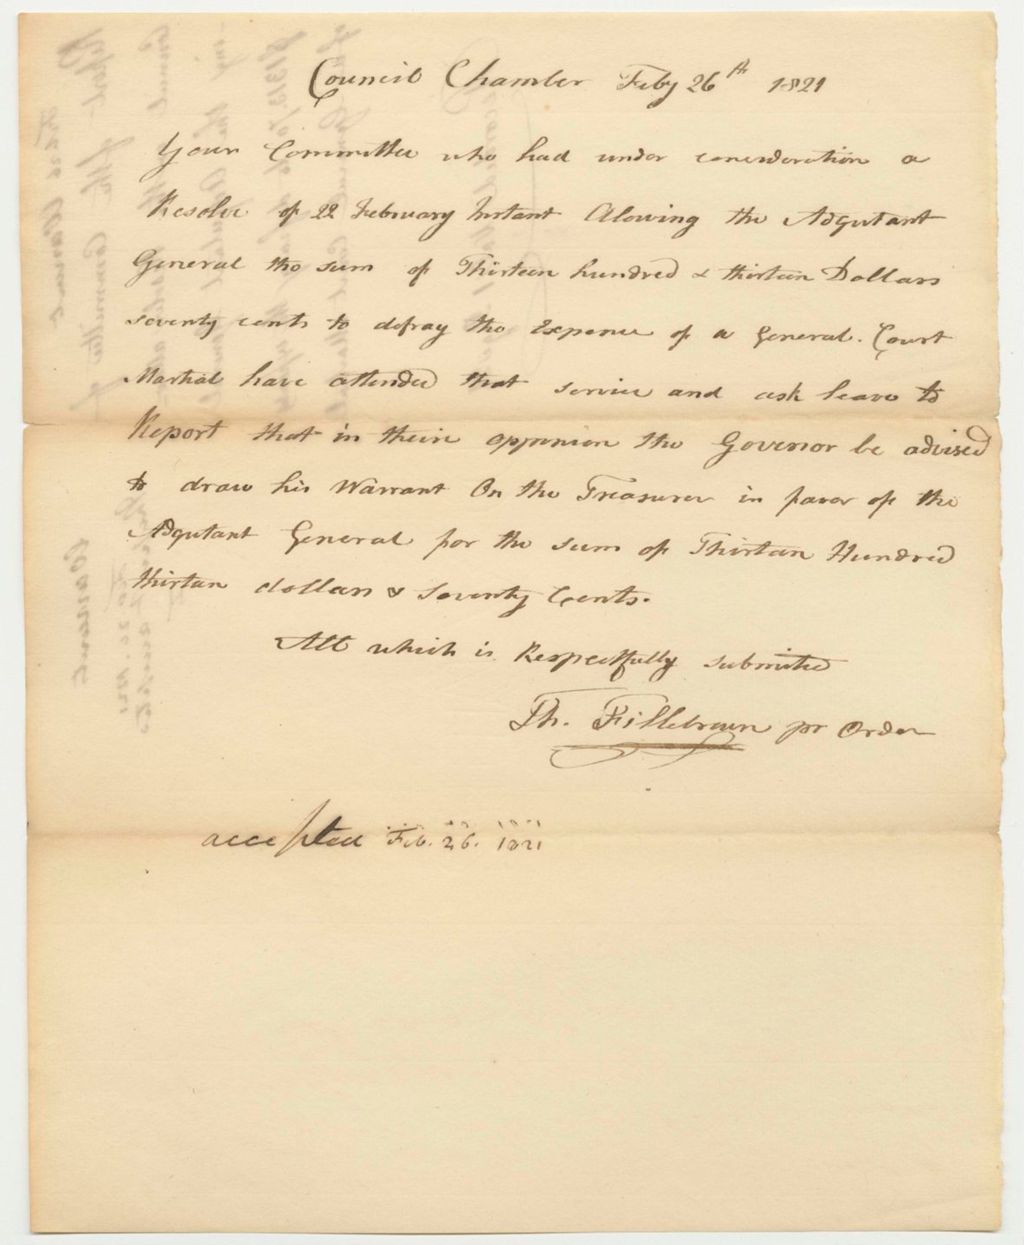 Council Chamber Feby 26th 1821
Your Committee who had under consideration a
Resolve of 22 February Instant Alowing the Adqutant
General the sum of Thirteen hundred & thirteen Dollars
seventy cents to defray the Expence of a General Court
Martial have attended that service and ask leave to
Report that in their oppinion the Govenor be advised
to draw his Warrant On the Treasurer in favor of the
Adqutant General for the sum of Thirteen Hundred
thirteen dollars & Seventy Cents.
All which is Respectfully submitted
Th. Fillebrown pr Order
accepted Feb. 26. 1821